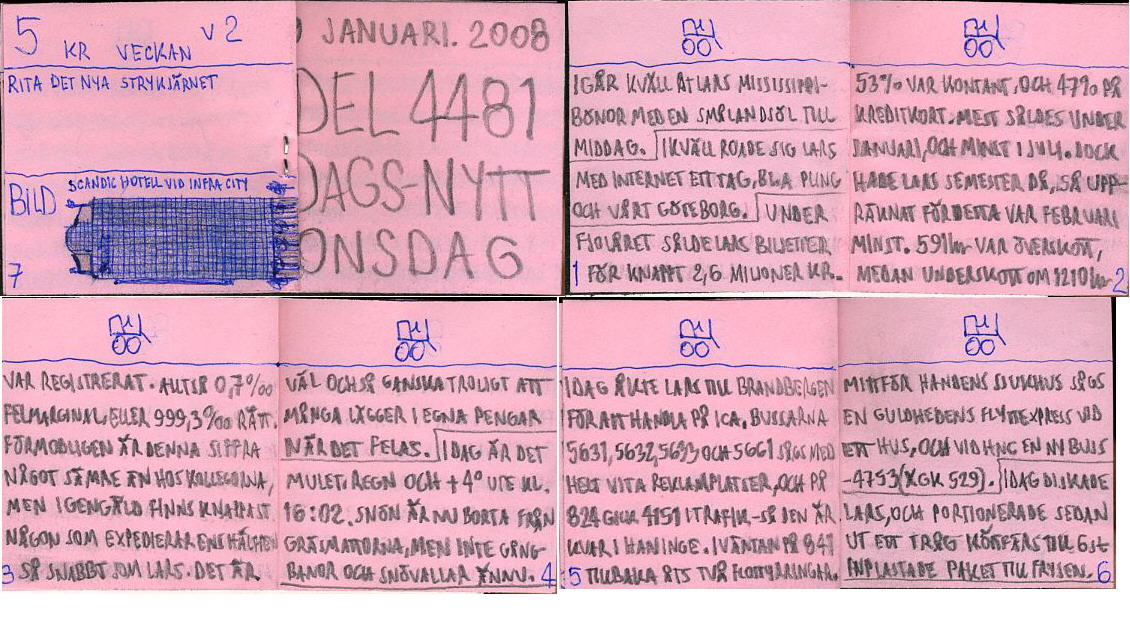 5 KR VECKAN V2
RITA DET NYA STRYKJÄRNET
BILD
SCANDIC HOTELL VID INFRA CITY
7
9 JANUARI. 2008
DEL 4481
DAGS-NYTT
ONSDAG
IGÅR KVÄLL ÅT LARS MISSISSIPPI-
BÖNOR MED EN SMÅLANDSÖL TILL
MIDDAG. IKVÄLL ROADE SIG LARS
MED INTERNET ETT TAG, BL.A PUNG
OCH VÅRT GÖTEBORG. UNDER
FJOLÅRET SÅLDE LARS BILJETTER
1 FÖR KNAPPT 2,6 MILJONER KR.
53% VAR KONTANT, OCH 47% PÅ
KREDITKORT. MEST SÅLDES UNDER
JANUARI, OCH MINST I JULI. DOCK
HADE LARS SEMESTER DÅ, SÅ UPP-
RÄKNAT FÖR DETTA VAR FEBRUARI
MINST. 591 kr VAR ÖVERSKOTT,
MEDAN UNDERSKOTT OM 1210 kr 2
VAR REGISTRERAT. ALLTSÅ 0,7‰
FELMARGINAL, ELLER 999,3‰ RÄTT.
FÖRMODLIGEN ÄR DENNA SIFFRA
NÅGOT SÄMRE ÄN HOS KOLLEGORNA,
MEN I GENGÄLD FINNS KNAPPAST
NÅGON SOM EXPEDIERAR ENS HÄLFTEN
3 SÅ SNABBT SOM LARS. DET ÄR
VÄL OCHSÅ GANSKA TROLIGT ATT
MÅNGA LÄGGER I EGNA PENGAR
NÄR DET FELAS. IDAG ÄR DET
MULET. REGN OCH +4° UTE KL.
16:02. SNÖN ÄR NU BORTA FRÅN
GRÄSMATTORNA, MEN INTE GÅNG-
BANOR OCH SNÖVALLAR ÄNNU. 4
IDAG ÅKTE LARS TILL BRANDBERGEN
FÖR ATT HANDLA PÅ ICA. BUSSARNA
5631, 5632, 5693 OCH 5661 SÅGS MED
HELT VITA REKLAMPLATSER, OCH PÅ
824 GICK 4151 I TRAFIK - SÅ DEN ÄR
KVAR I HANINGE. I VÄNTAN PÅ 841
5 TILLBAKA ÅTS TVÅ FLOTTYRRINGAR.
MITTFÖR HANDENS SJUKHUS SÅGS
EN GULDHEDENS FLYTTEXPRESS VID
ETT HUS, OCH VID HNC EN NY BUSS
-4753 (XGK 529). IDAG DISKADE
LARS, OCH PORTIONERADE SEDAN
UT ETT TRÅG KÖTTFÄRS TILL 6 st
INPLASTADE PAKET TILL FRYSEN. 6